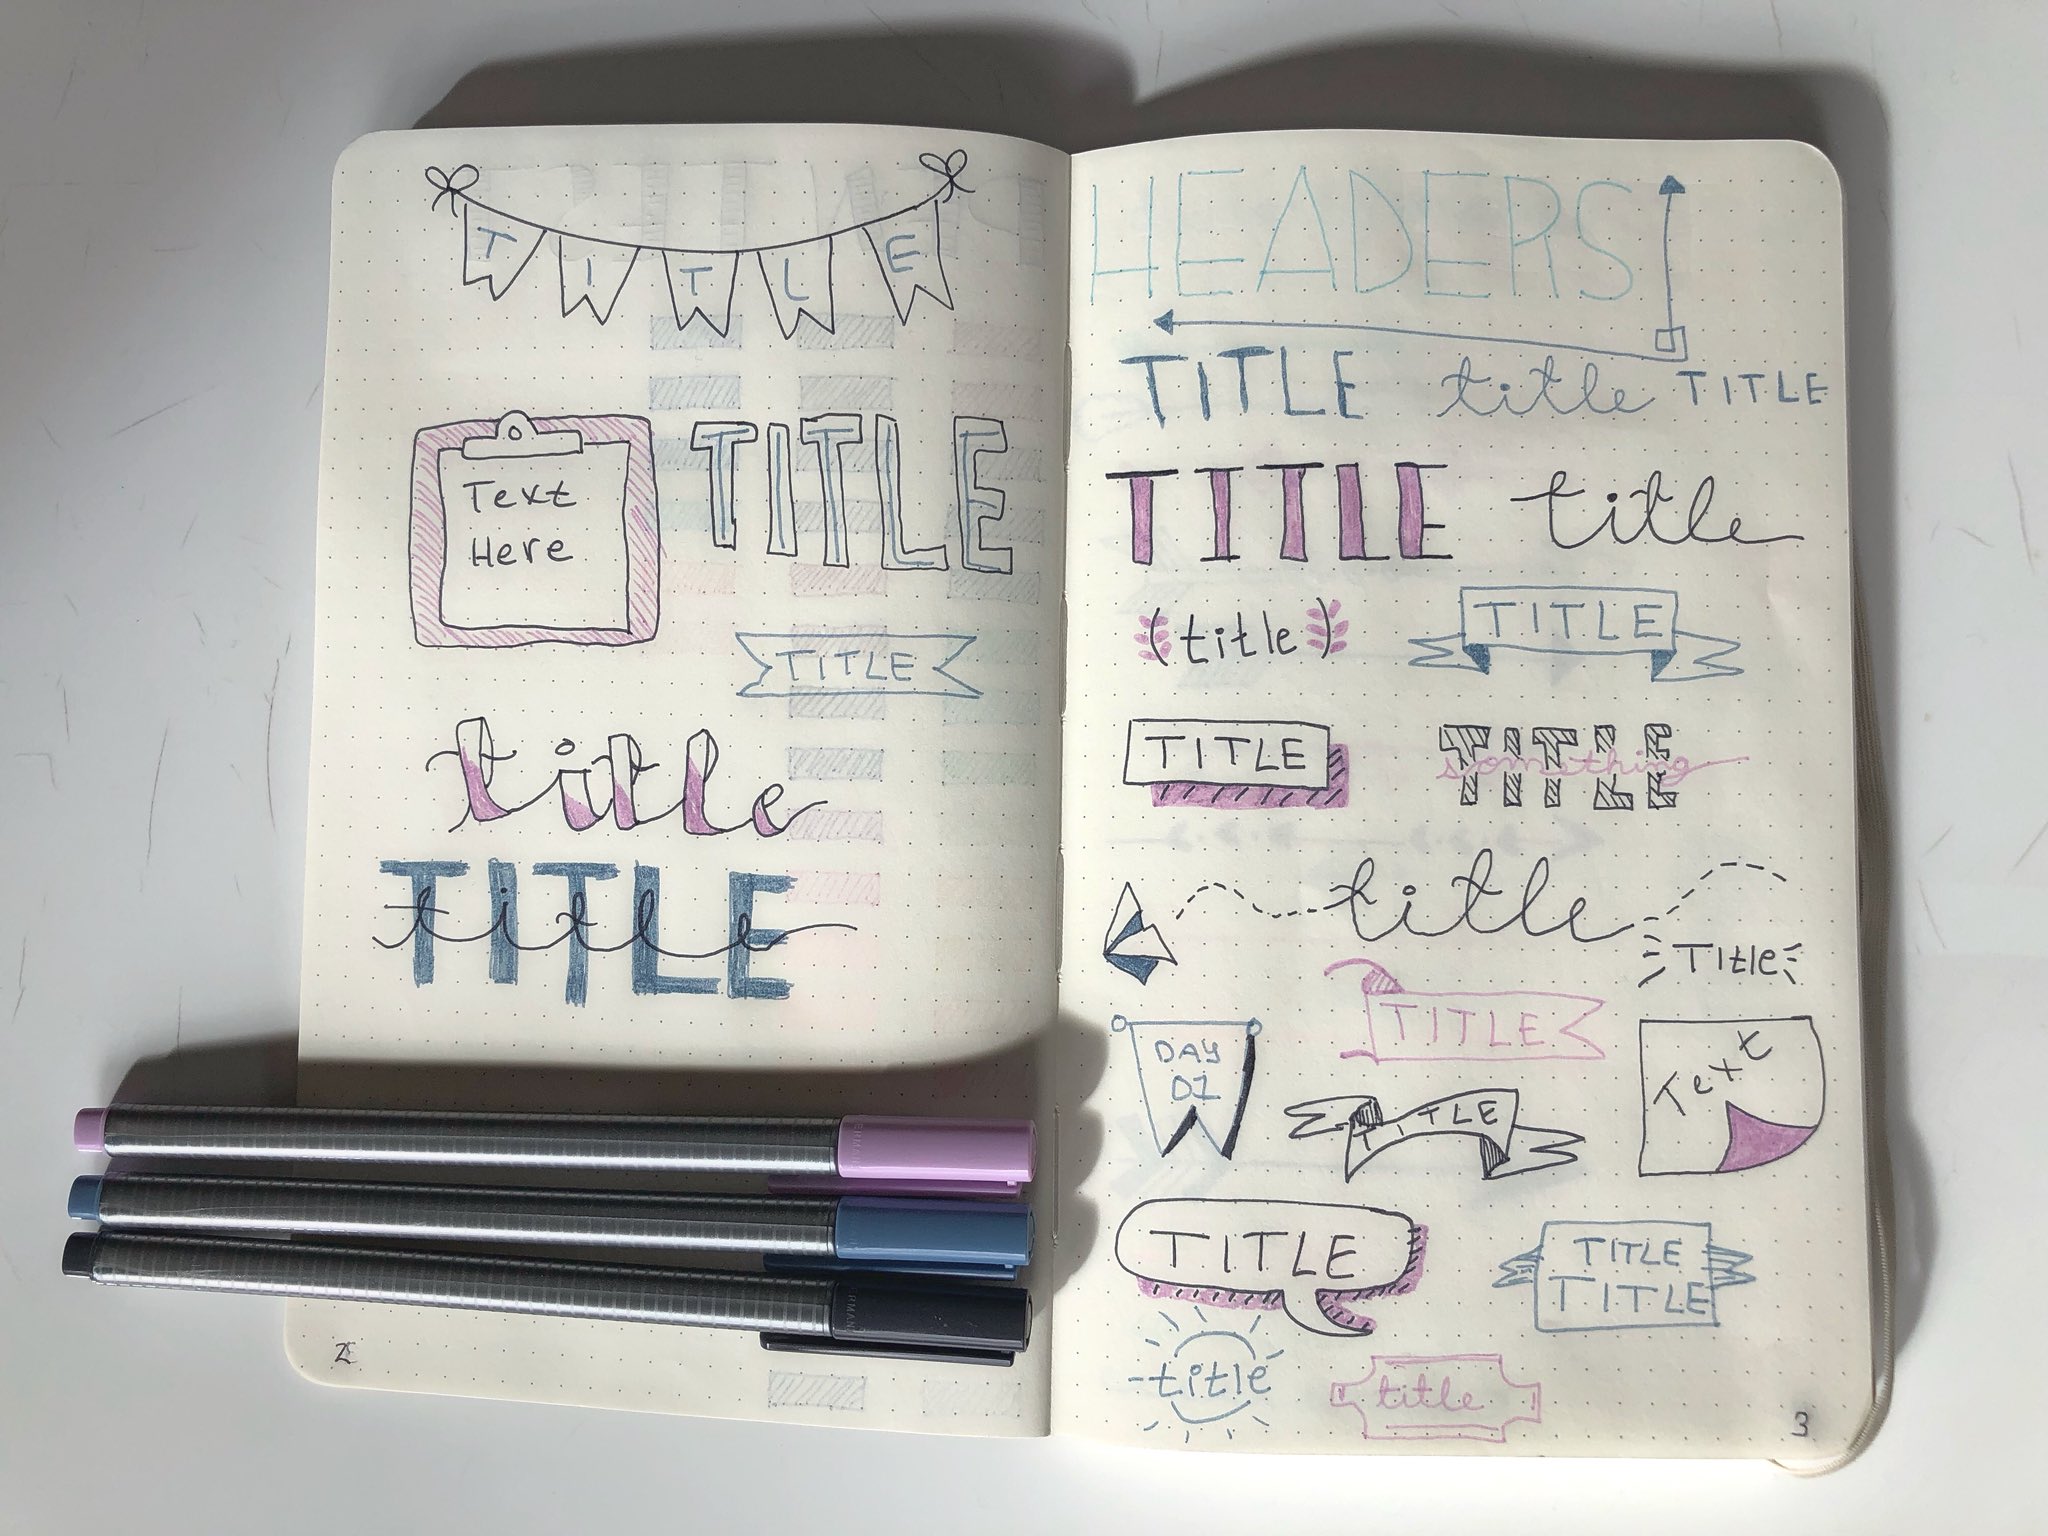 TITLE
Text
Here
TITLE
TITLE
title
TITLE
title
2
HEADERS
TITLE title TITLE
TITLE title
(title) TITLE
TITLE TITLE
something
title
Title
TITLE
DAY
01
Text
TITLE
TITLE
TITLE
TITLE
title
title
3